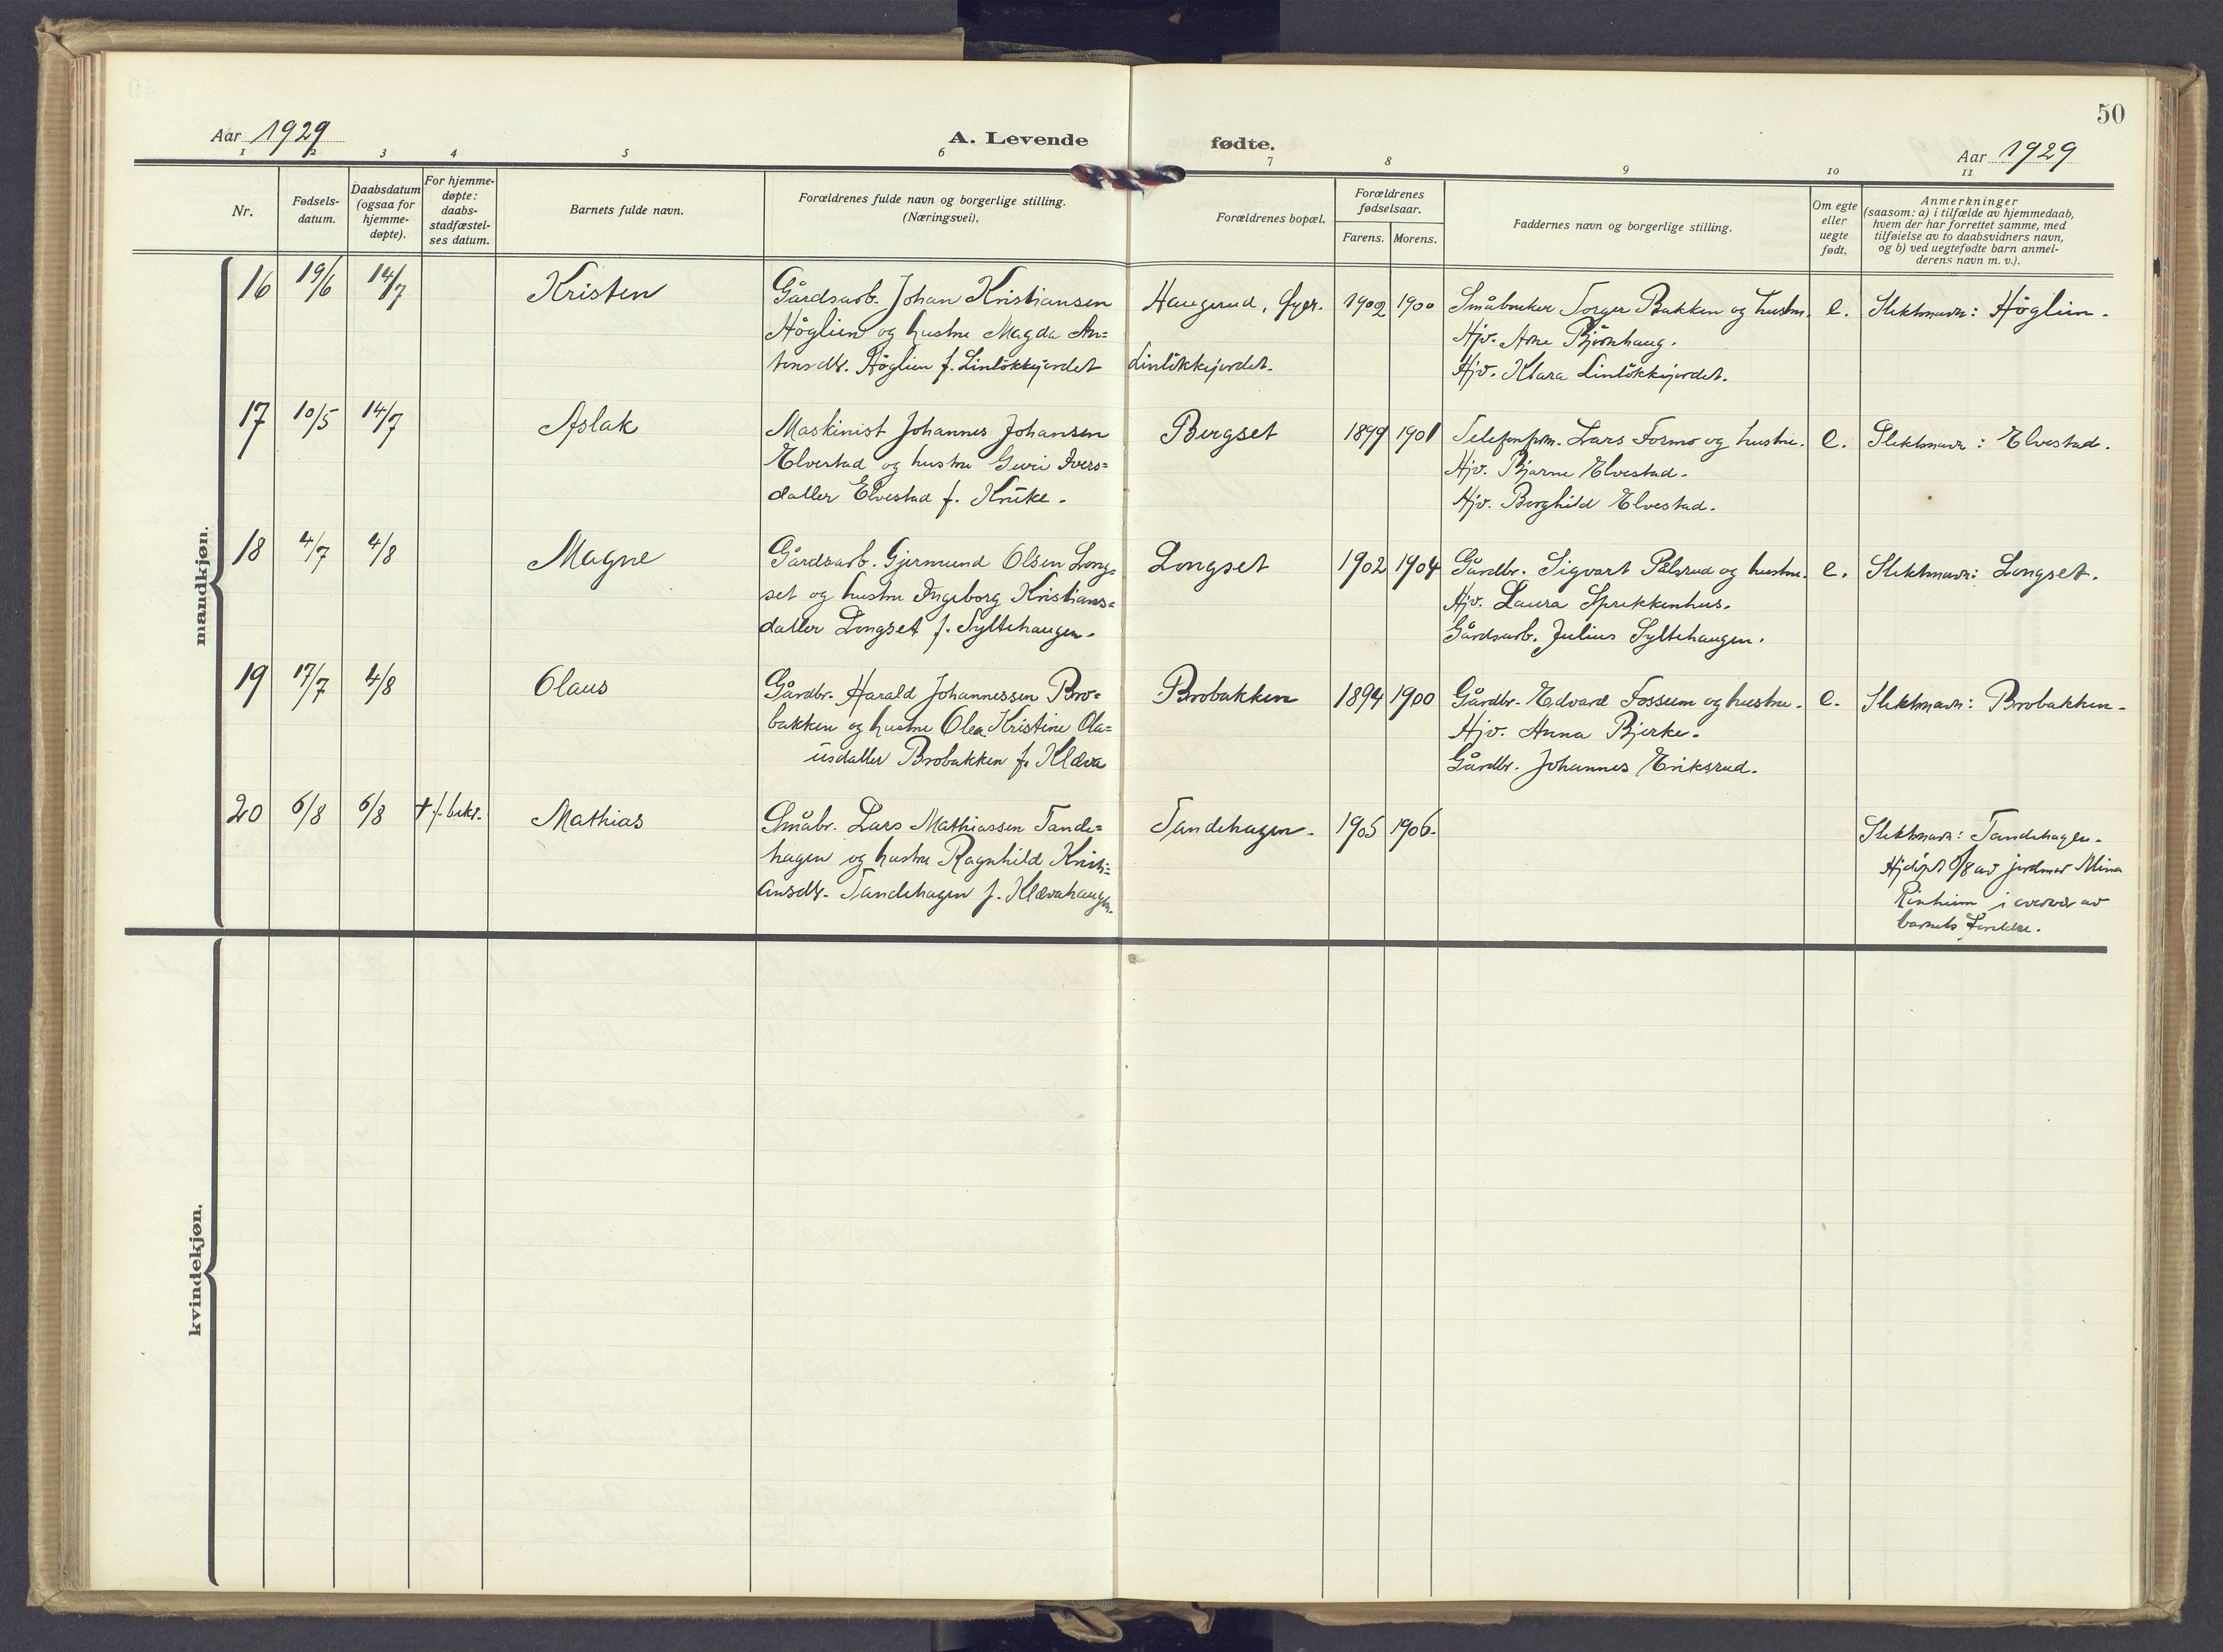 50
Aar 1929
A. Levende fødte.
Aar 1929
1 2 3 4 5 6 7 8 9 10 11
Nr.
Fødsels-
datum.
Daabsdatum
(ogsaa for
hjemme-
døpte).
For hjemme-
døpte:
daabs-
stadfæstel-
ses datum.
Barnets fulde navn.
Forældrenes fulde navn og borgerlige stilling.
(Næringsvei).
Forældrenes bopæl.
Forældrenes
fødselsaar.
Farens. Morens.
Faddernes navn og borgerlige stilling.
Om egte
eller
uegte
født.
Anmerkninger
(saasom: a) i tilfælde av hjemmedaab,
hvem der har forrettet samme, med
tilføielse av to daabsvidners navn,
og b) ved uegtefødte barn anmel-
derens navn m. v.).
mandkjøn.
16 19/6 14/7 Kristen
Gårdsarb. Johan Kristiansen
Höglien og hustru Magda An=
tonsdtr. Höglien f. Linlökkjordet
Haugerud,
Linlökkjordet.
1902 1900
Småbruker Torger Bakken og hustru.
Hjv. Arne Björnhaug.
Hjv. Klara Linlökkjordet.
e.
Slektsnavn: Höglien.
17 10/5 14/7 Aslak
Maskinist Johannes Johansen
Elvestad og hustru Guri Ivers=
datter Elvestad f. Kruke.
Bergset
1899 1901
Lars Formo og hustru.
Hjv. Bjarne Elvestad.
Hjv. Borghild Elvestad.
e.
Slektsnavn: Elvestad.
18 4/7 4/8 Magne
Gårdsarb. Gjermund Olsen Long=
set og hustru Ingeborg Kristians=
datter Longset f. Syltehaugen.
Longset
1902 1904
Gårdbr. Sigvart Pålsrud og hustru.
Hjv. Laura Sprekkenhus.
Gårdsarb. Julius Syltehaugen.
e.
Slektsnavn: Longset.
19 17/7 4/8 Olaus
Gårdbr. Harald Johannessen Bro=
bakken og hustru Olea Kristine Ola=
usdatter Brobakken f. Kleva
Brobakken
1894 1900
Gårdbr. Edvard Fossum og hustru.
Hjv. Anna Bjerke.
Gårdbr. Johannes Eriksrud.
e.
Slektsnavn: Brobakken.
20 6/8 6/8 + f. bekr. Mathias
Småbr. Lars Mathiassen Tande=
hagen og hustru Ragnhild Kristi=
ansdtr. Tandehagen f. Klevahaugen.
Tandehagen.
1905 1906.
Slektsnavn: Tandehagen.
Hjdöpt 6/8 av jordmor Mina
i overvær av
barnets foreldre.
kvindekjøn.